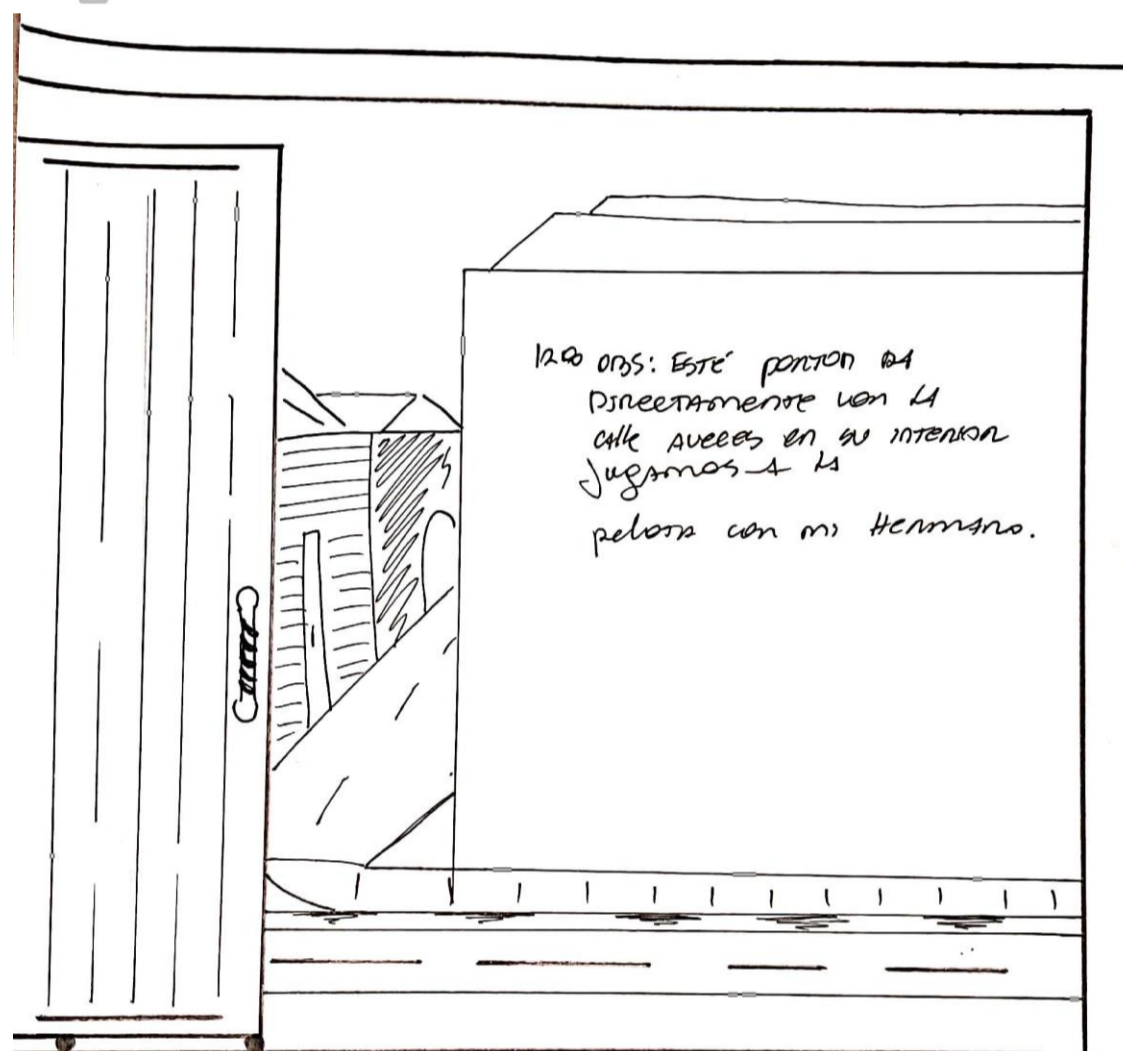 OBS: ESTÉ PORTON DA
DIRECTAMENTE CON LA
CALLE AVECES EN SU INTERIOR
JUGAMOS A LA
PELOTA CON MI HERMANO.